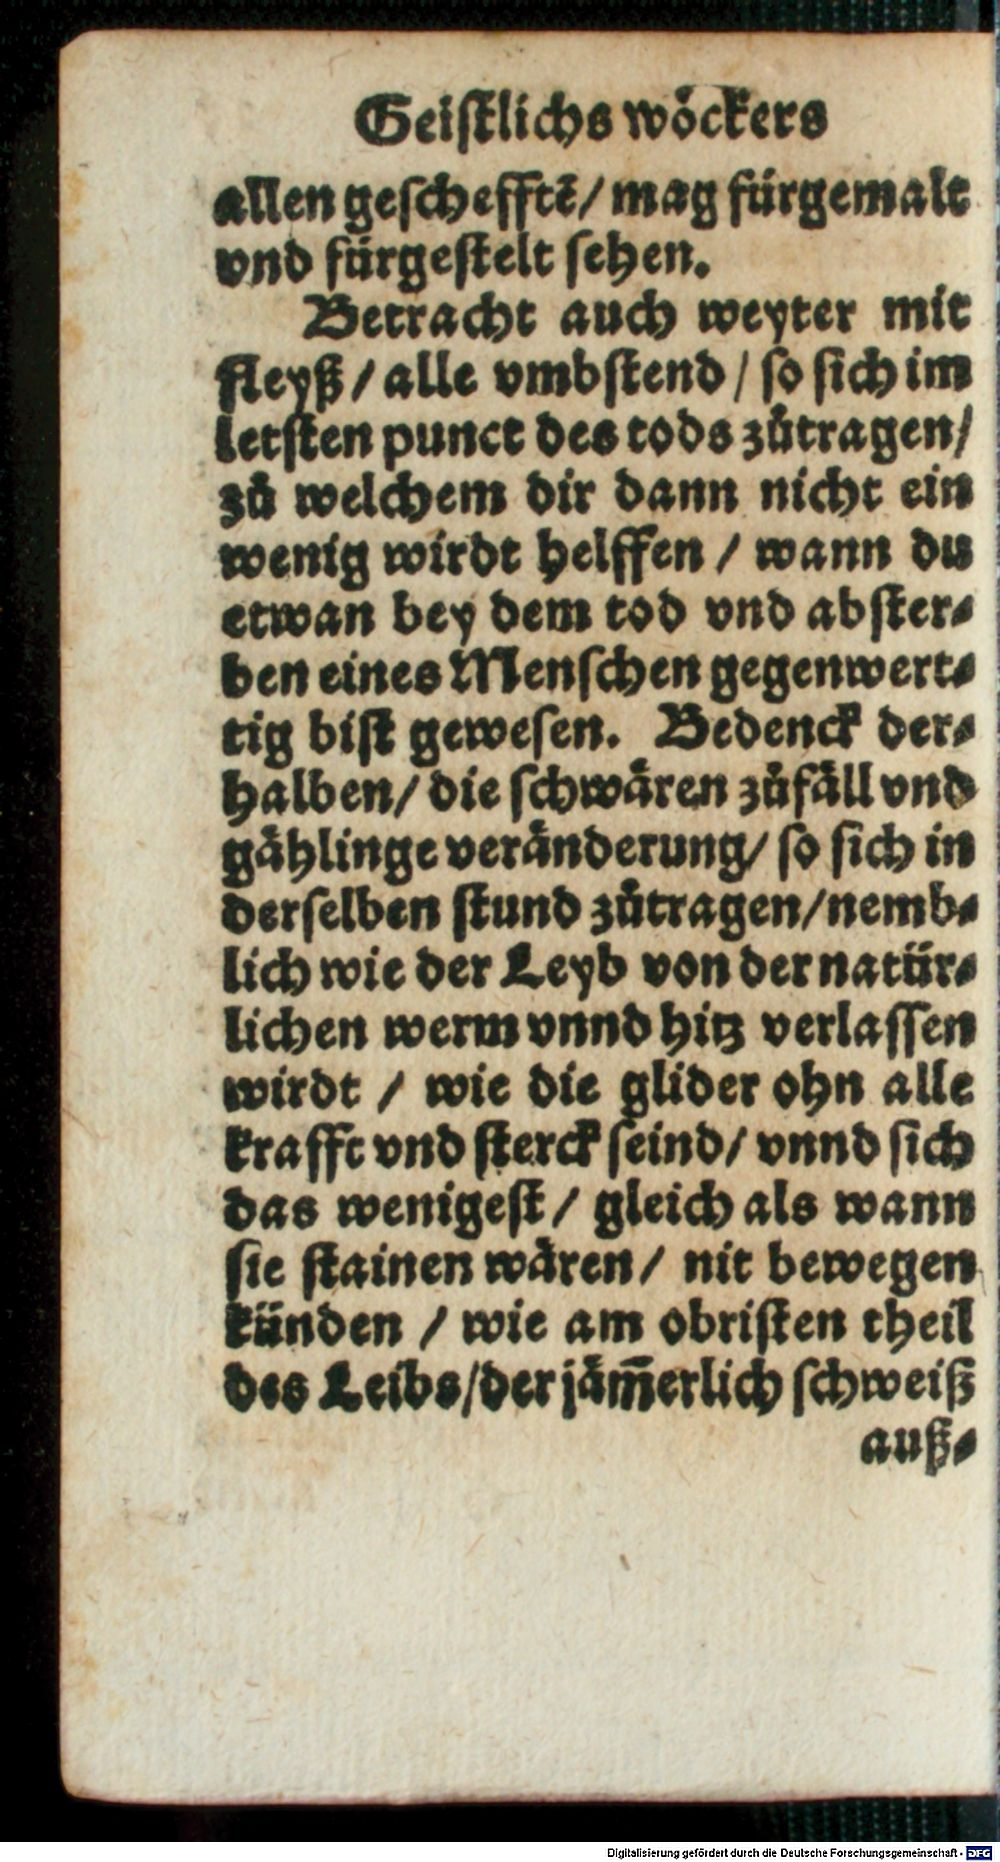 Geistlichs wöckers
allen geschefftē/ mag fürgemalt
vnd fürgestelt sehen.
Betracht auch weyter mit
fleyß / alle vmbstend / so sich im
letsten punct des tods zůtragen/
zů welchem dir dann nicht ein
wenig wirdt helffen / wann du
etwan bey dem tod vnd abster⸗
ben eines Menschen gegenwert⸗
tig bist gewesen. Bedenck der⸗
halben/ die schwären zůfäll vnd
gählinge veränderung/ so sich in
derselben stund zůtragen/nemb⸗
lich wie der Leyb von der natür⸗
lichen werm vnnd hitz verlassen
wirdt / wie die glider ohn alle
krafft vnd sterck seind/ vnnd sich
das wenigest / gleich als wann
sie stainen wären/ nit bewegen
künden / wie am obristen theil
des Leibs/der jäm̄erlich schweiß
auß⸗
Digitalisierung gefördert durch die Deutsche Forschungsgemeinschaft - DFG